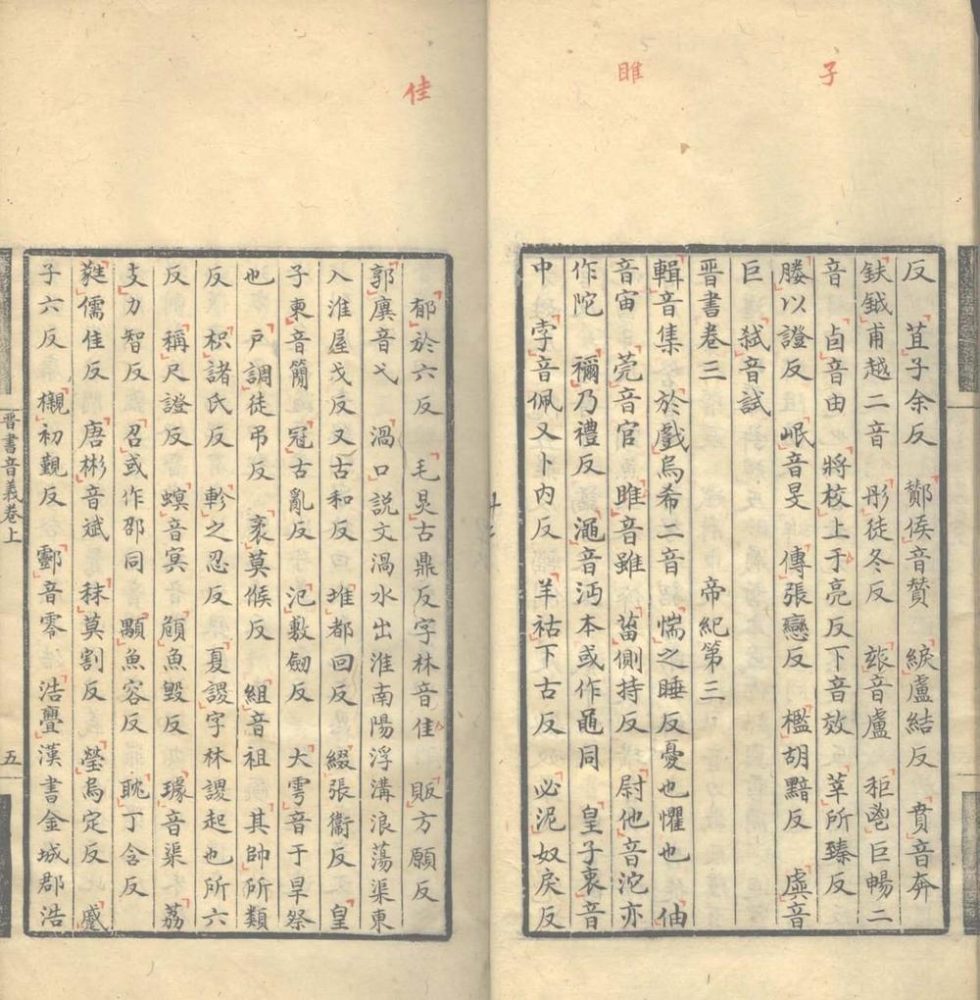 子
睢
反 苴子余反 酇侯音賛 綟盧結反 賁音奔
鈇鉞甫越二音 彤徒冬反 玈音盧 秬鬯巨暢二
音 卣音由 將校上于亮反下音效 莘所臻反
媵以證反 岷音旻 傳張戀反 檻胡黯反 虡音
巨 弑音試
晉書卷三 帝紀第三
輯音集 於戲烏希二音 惴之睡反憂也懼也 伷
音宙 莞音官 雎音雖 菑側持反 尉他音沱亦
作陀 禰乃禮反 澠音沔本或作黽同 皇子衷音
中 孛音佩又卜內反 羊祜下古反 必泥奴戾反
佳
郁於六反 毛炅古鼎反字林音佳 販方願反
郭廙音弋 渦口說文渦水出淮南陽浮溝浪蕩渠東
入淮屋戈反又古和反 堆都回反 綴張衞反 皇
子東音簡 冠古亂反 汜敷劒反 大雩音于旱祭
也 戶調徒弔反 袤莫候反 組音祖 其帥所類
反 枳諸氏反 軫之忍反 夏謖字林謖起也所六
反 稱尺證反 蟆音冥 頠魚毀反 璩音渠 荔
支力智反 召或作邵同 顒魚容反 耽丁含反
蕤儒佳反 唐彬音斌 秣莫割反 瑩烏定反 蹙
子六反 櫬初覲反 酃音零 浩亹漢書金城郡浩
晉書音義卷上
五